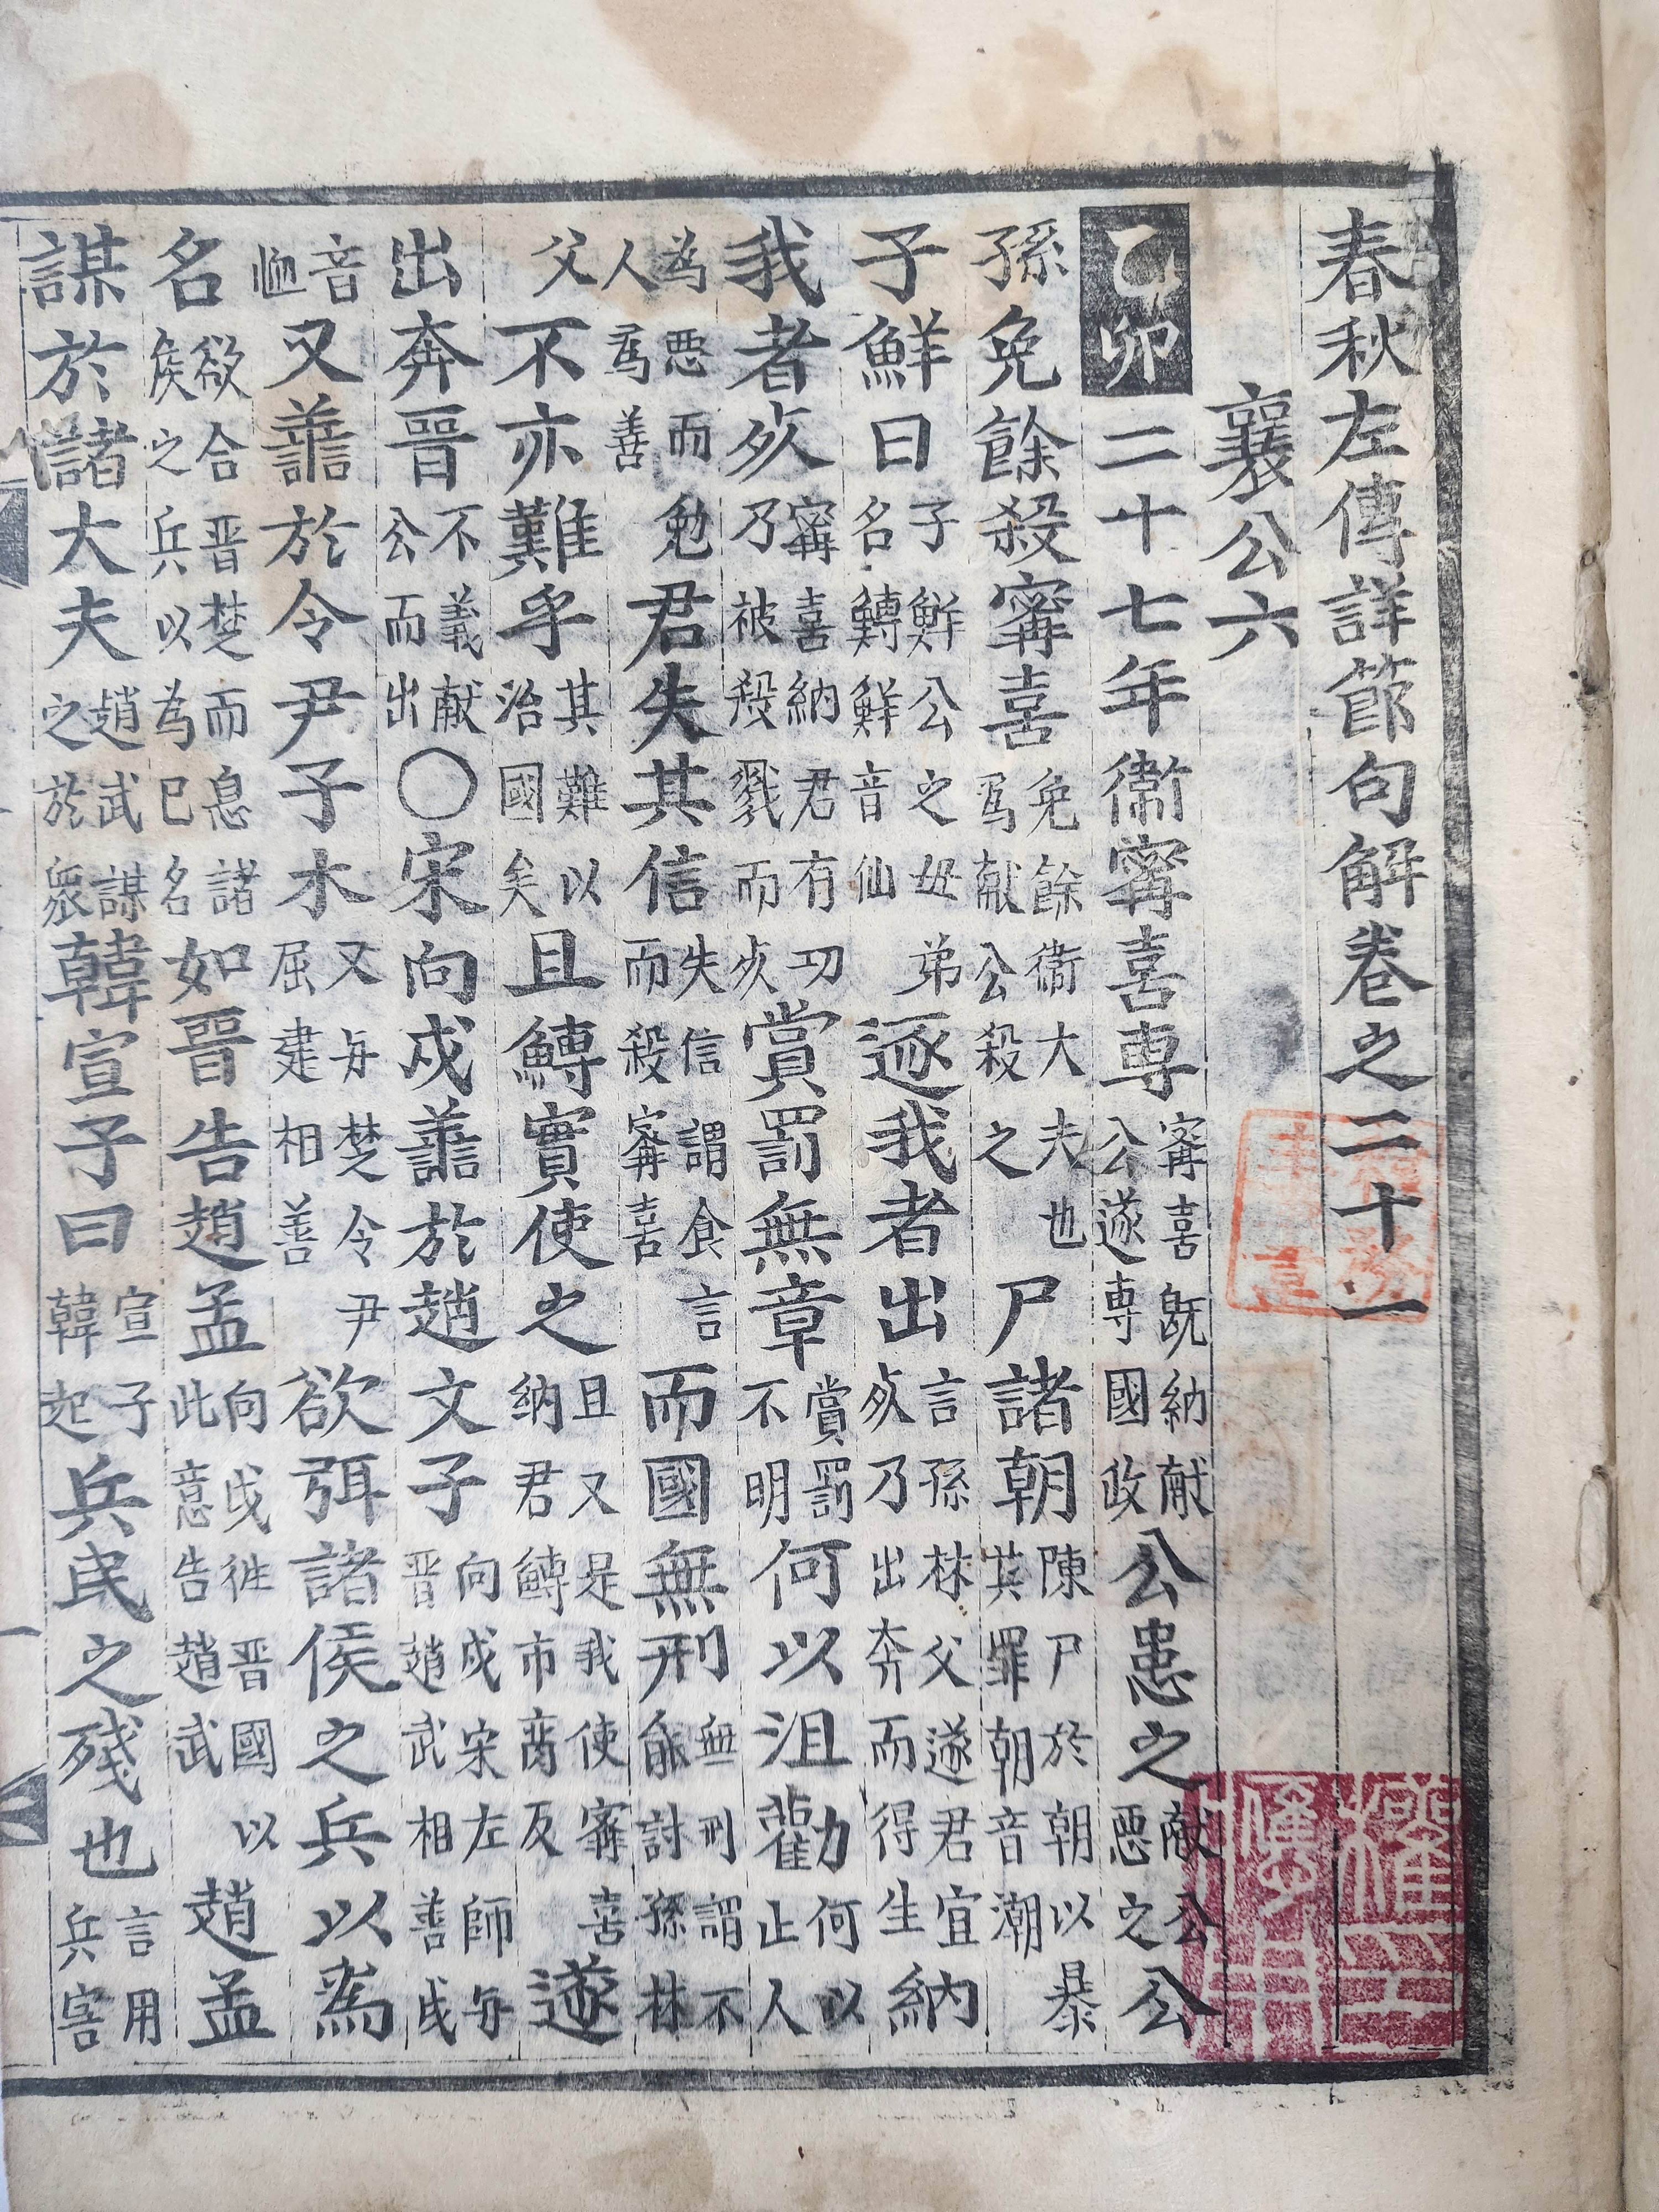 春秋左傳詳節句解卷之二十一
襄公六
乙卯二十七年衛甯喜專甯喜旣納献公遂專國政公患之献公惡之公
孫免餘殺甯喜免餘衛大夫也爲献公殺之尸諸朝陳尸於朝以暴其罪朝音潮
子鮮曰子鮮公之母弟名鱄鮮音仙逐我者出言孫林父遂君宜死乃出奔而得生納
我者死甯喜納君有功乃被殺戮而死賞罰無章賞罰不明何以沮勸何以止人
為惡而勉人爲善君失其信失信謂食言而殺甯喜而國無刑無刑謂不能討孫林
父不亦難乎其難以治國矣且鱄實使之且又是我使甯喜納君鱄市商反遂
出奔晋不義献公而出○宋向戌譱於趙文子向戌宋左師与晋趙武相善戌
音恤又譱於令尹子木又与楚令尹屈建相善欲弭諸侯之兵以爲
名欲合晋楚而息諸侯之兵以為已名如晋告趙孟向戌徃晋國以此意告趙武趙孟
謀於諸大夫趙武謀之於衆韓宣子曰宣子韓起兵民之殘也言用兵害